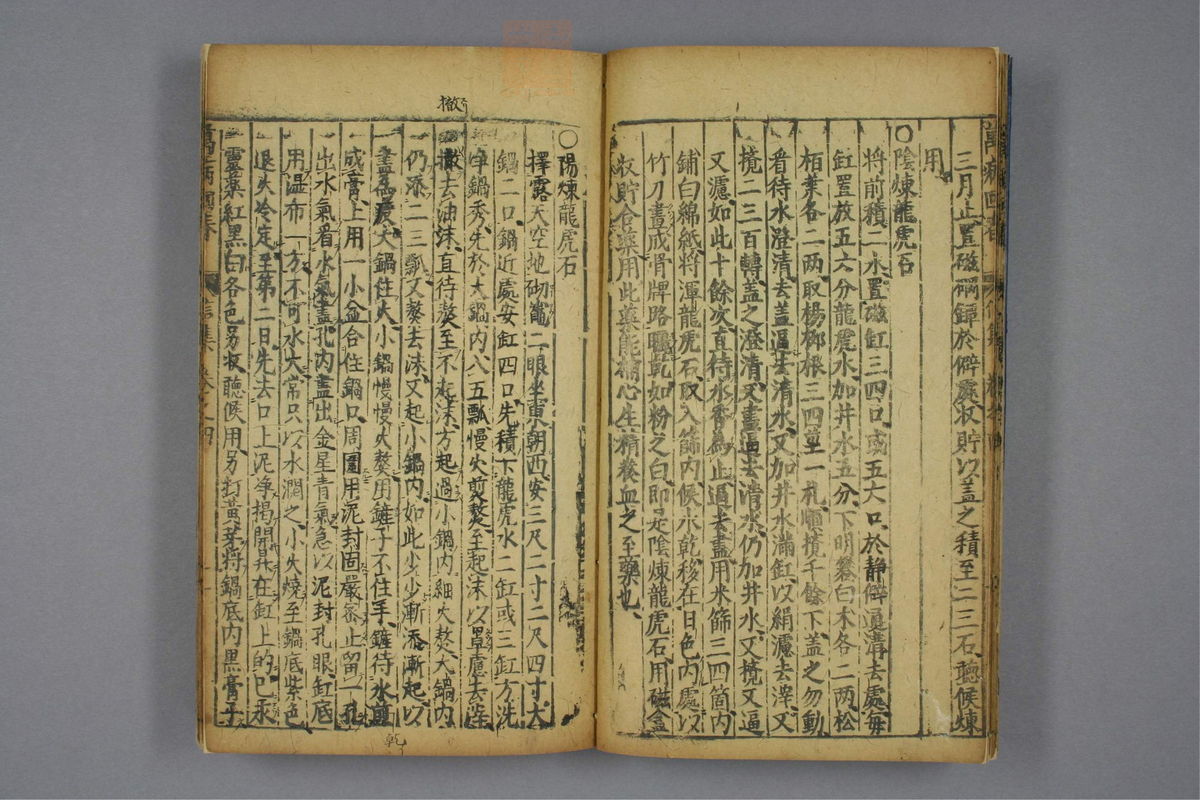 三月止置磁礶鐔於僻處收貯以盖之積至二三石聽候煉
用
○陰煉龍虎石
將前積二水置磁缸三四口或五六口於靜僻通溝去處每
缸置放五六分龍虎水加井水五分下明礬白木各二两松
栢葉各二两取楊桞根三四莖一札順攪千餘下盖之勿動
看待水澄清去盖逼去清水又加井水滿缸以絹濾去滓又
攪二三百轉盖之澄清又盡逼去清水仍加井水又攪又逼
又濾如此十餘次直待水香為止逼去盡用米篩三四箇内
鋪白綿紙將渾龍虎石取入篩内候水乾移在日色内處以
竹刀畫成骨牌路曬乾如粉之白即是陰煉龍虎石用磁盒
收貯合藥用此藥能補心生精養血之至藥也
○陽煉龍虎石
擇露天空地砌竈二眼坐東朝西安三尺二寸二尺四寸大
鍋二口鍋近處安缸四口先積下龍虎水二缸或三缸方洗
净鍋秀先於大鍋内八五瓢慢火煎熬至起沫以罩慮去滓
撤去油沫直待熬至不起沫方起過小鍋内細火熬大鍋内
仍添二三瓢又熬去沫又起小鍋内如此少少漸添漸起以
盡為度大鍋住火小鍋慢慢火熬用鏟子不住手鏟待水煎
成膏上用一小盒合住鍋口周圍用泥封固嚴密止留一孔
出水氣看水氣盡孔内盡出金星青氣急以泥封孔眼缸底
用濕布一方不可水大常只以水潤之小火燒至鍋底紫色
退火冷定至第二日先去口上泥净揭開昇在缸上的已汞
靈藥紅黑白各色另收聽候用另打黃芽將鍋底内黑膏子
撤
乾